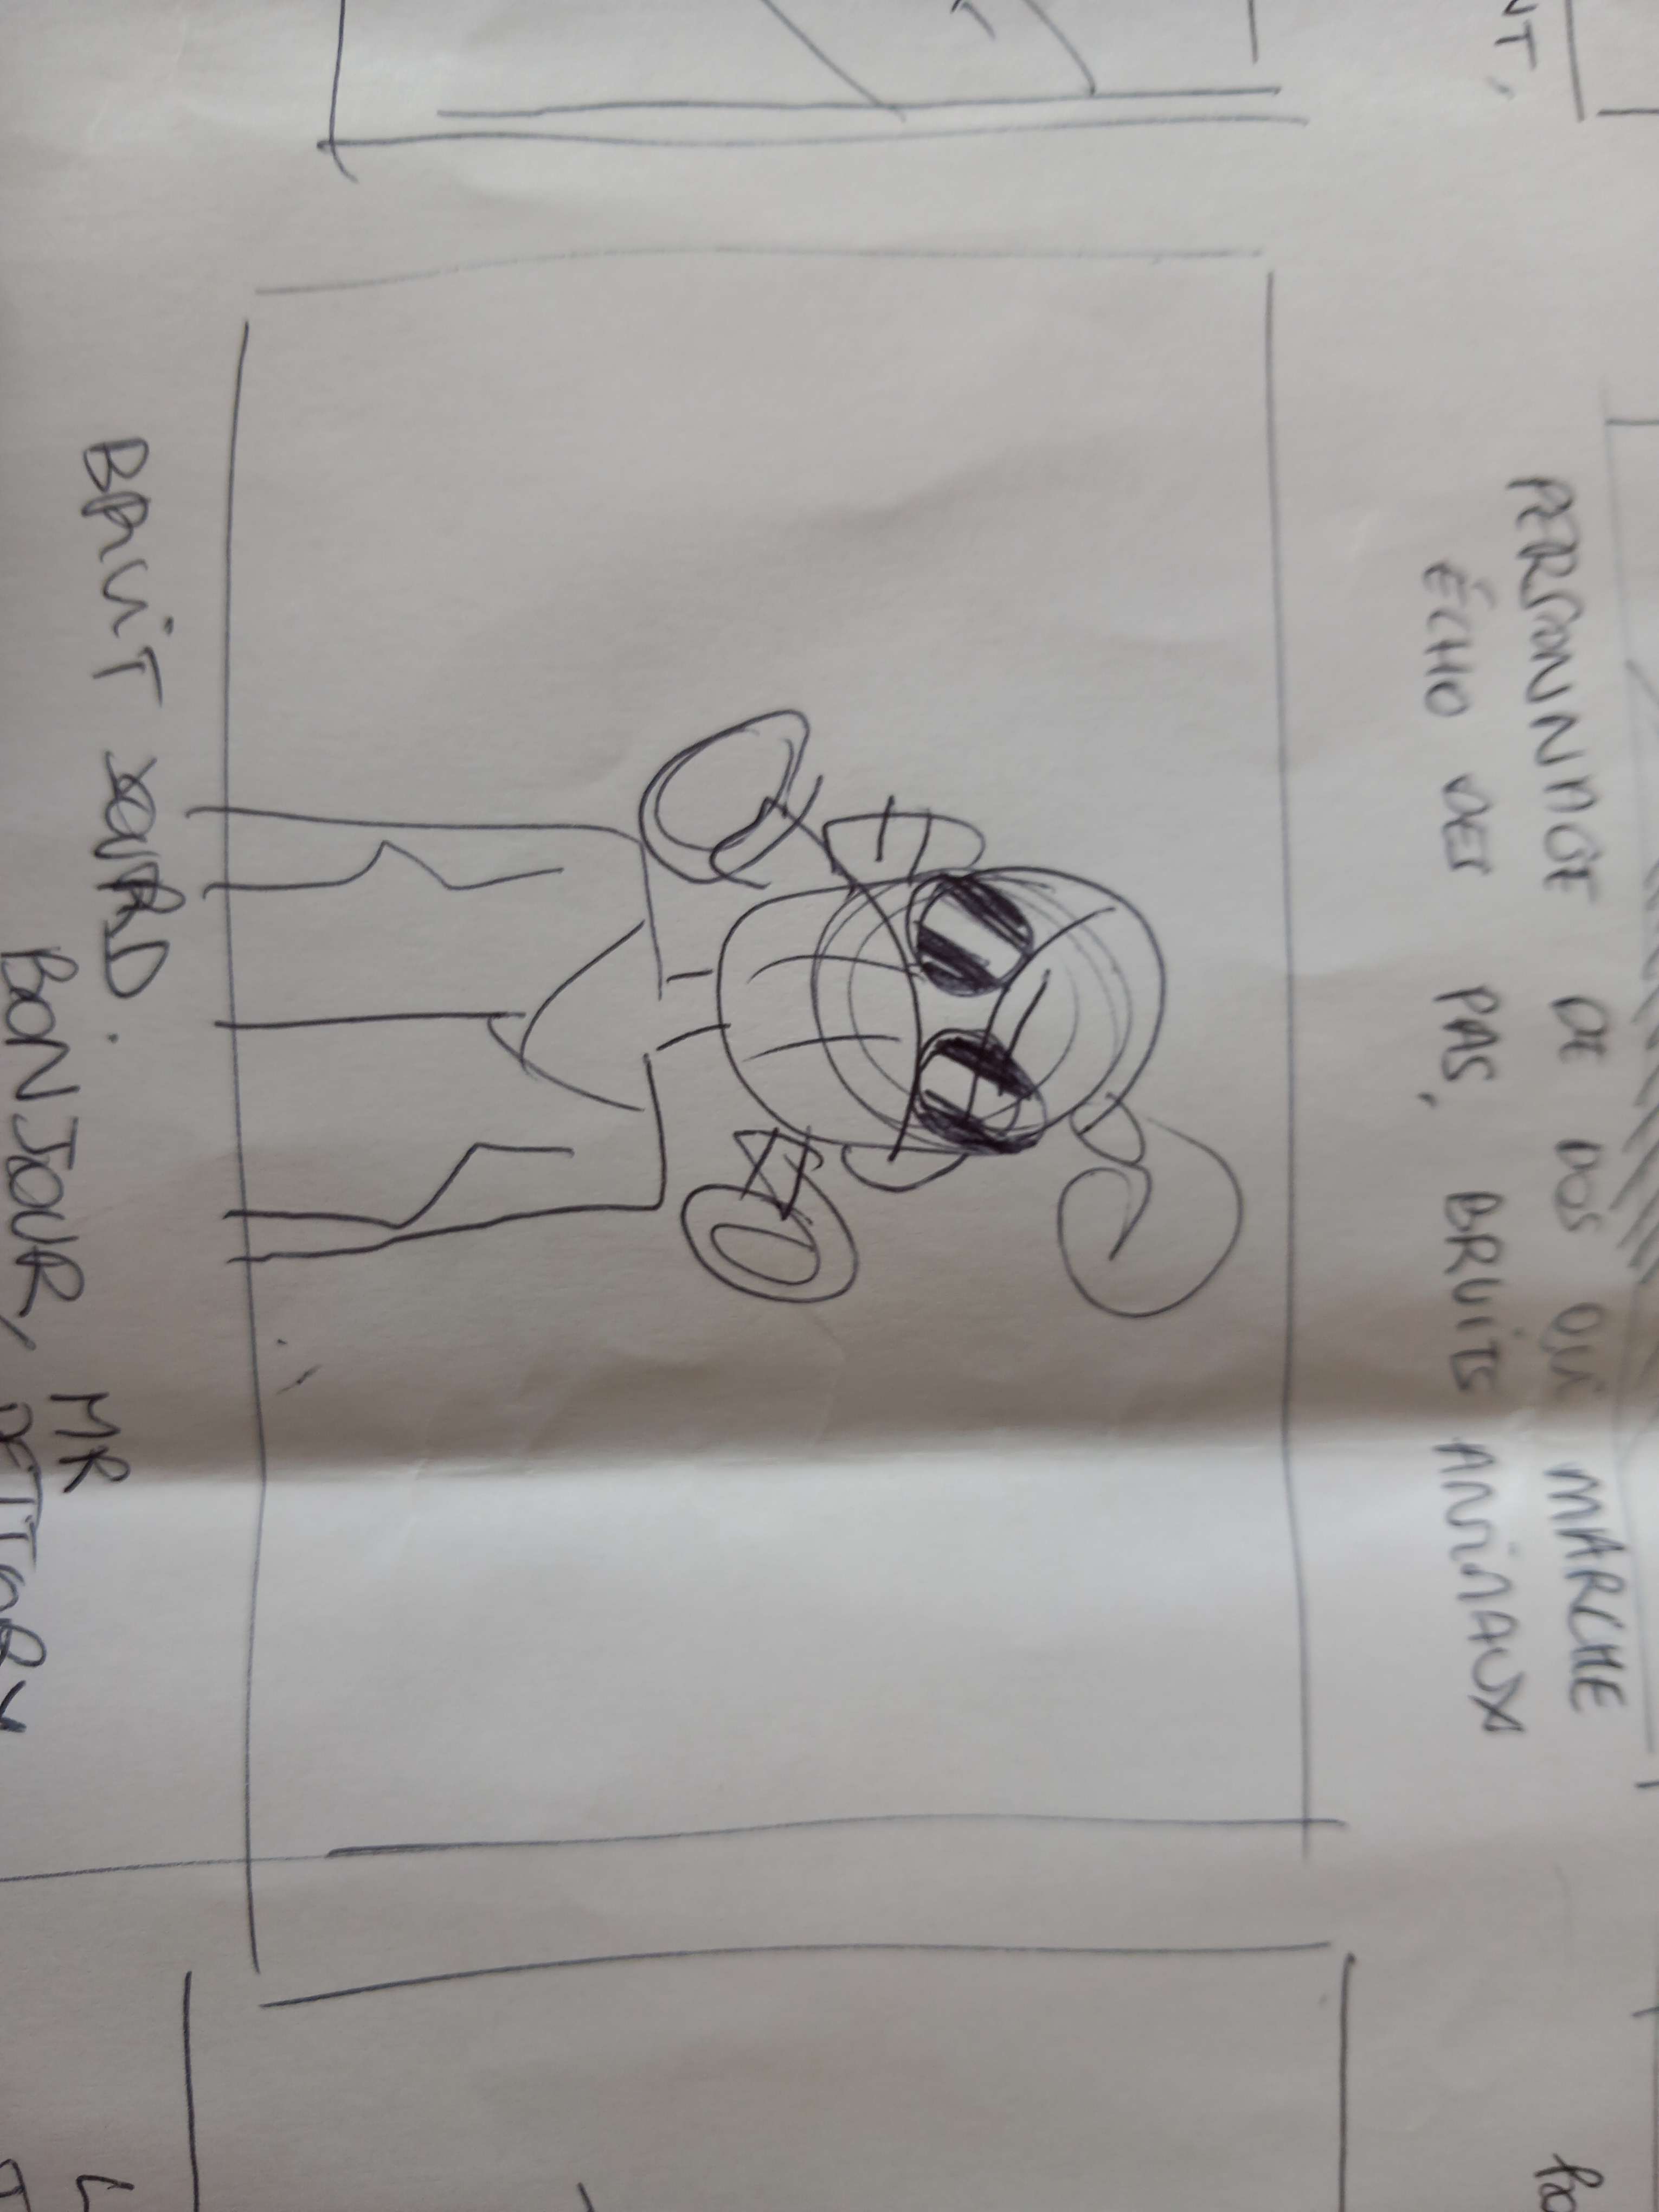 NT,
PERSONNAGE DE DOS QUI MARCHE
ÉCHO DES PAS, BRUITS ANIMAUX
BRUIT SOURD.
BONJOUR, MR